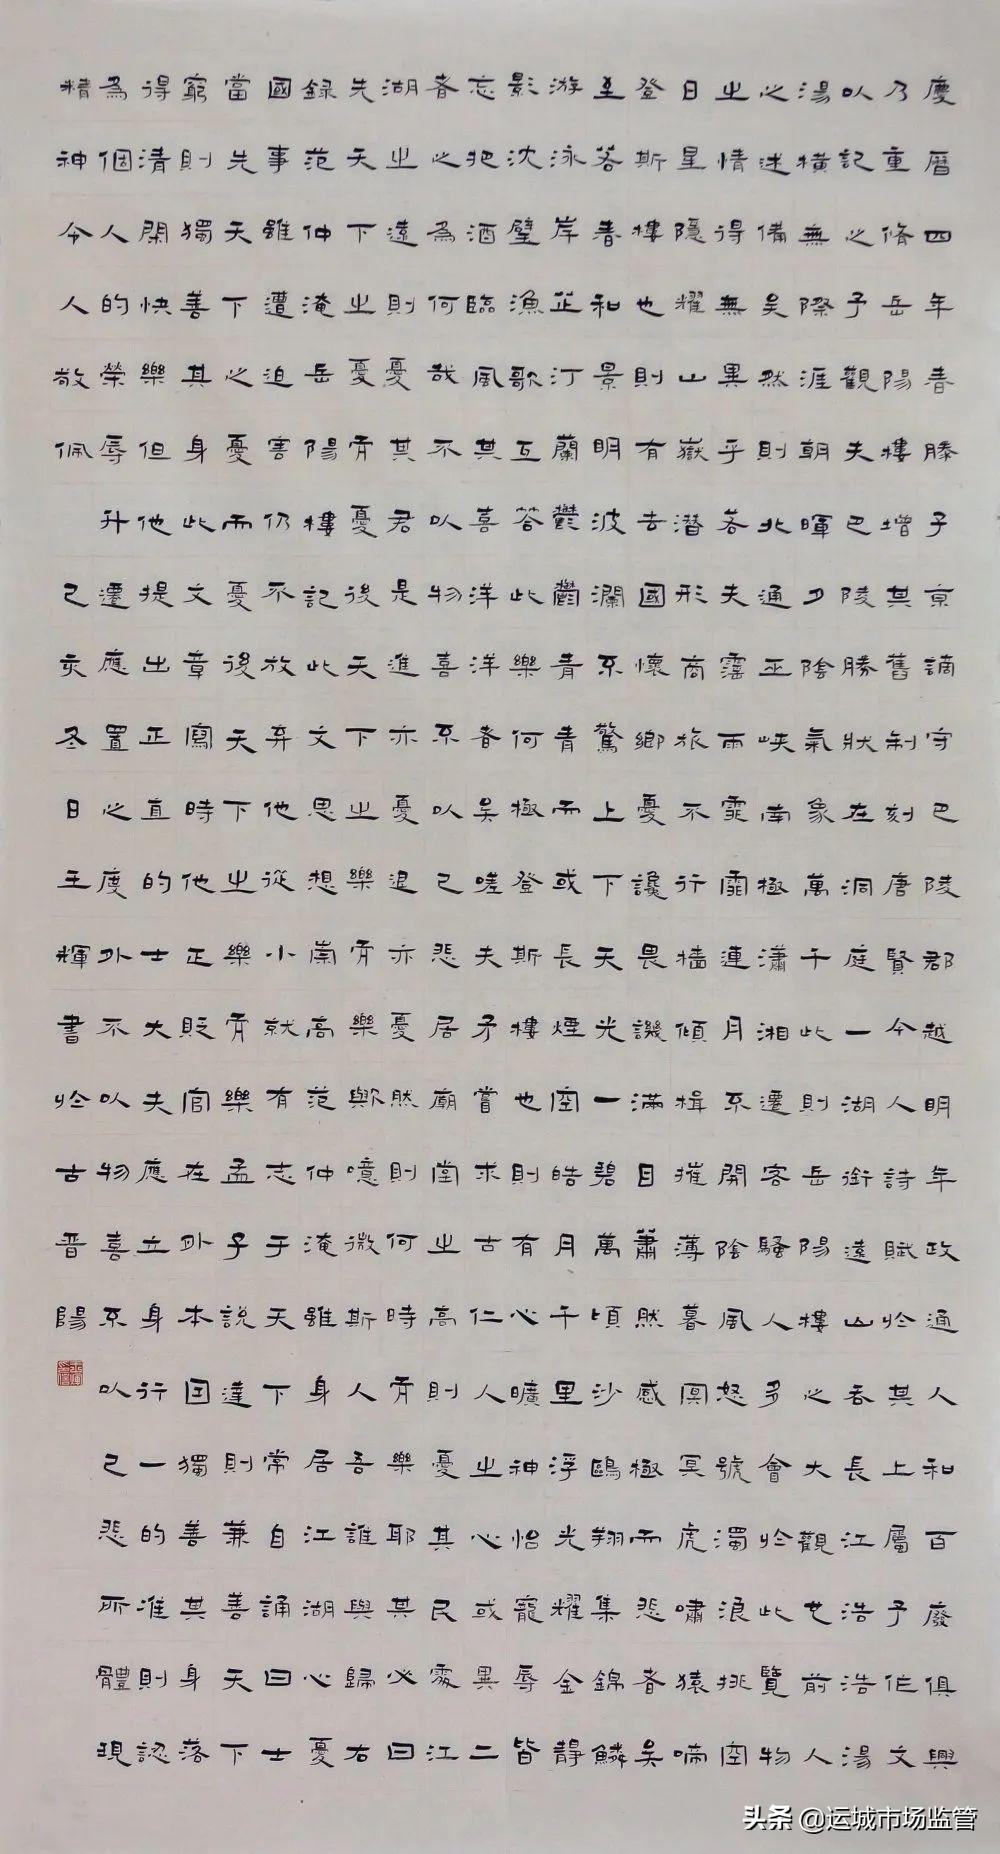 慶曆四年春滕子京謫守巴陵郡越明年政通人和百廢俱興
乃重脩岳陽樓增其舊制刻唐賢今人詩賦於其上屬予作文
以記之予觀夫巴陵勝狀在洞庭一湖銜遠山吞長江浩浩湯
湯橫無際涯朝暉夕陰氣象萬千此則岳陽樓之大觀也前人
之述備矣然則北通巫峽南極瀟湘遷客騷人多會於此覽物
之情得無異乎若夫霪雨霏霏連月不開陰風怒號濁浪排空
日星隱耀山嶽潛形商旅不行檣傾楫摧薄暮冥冥虎嘯猿啼
登斯樓也則有去國懷鄉憂讒畏譏滿目蕭然感極而悲者矣
至若春和景明波瀾不驚上下天光一碧萬頃沙鷗翔集錦鱗
游泳岸芷汀蘭鬱鬱青青而或長煙一空皓月千里浮光耀金靜
影沈璧漁歌互答此樂何極登斯樓也則有心曠神怡寵辱皆
忘把酒臨風其喜洋洋者矣嗟夫予嘗求古仁人之心或異二
者之為何哉不以物喜不以己悲居廟堂之高則憂其民處江
湖之遠則憂其君是進亦憂退亦憂然則何時而樂耶其必曰
先天下之憂而憂後天下之樂而樂歟噫微斯人吾誰與歸右
錄范仲淹岳陽樓記此文思想崇高范仲淹雖身居江湖心憂
國事雖遭迫害仍不放弃他從小就有志于天下常自誦曰士
當先天下之心憂而憂後天下之樂而樂孟子說達則兼善天下
窮則獨善其身此文章寫時他正貶官在外本因獨善其身落
得清閑快樂但他提出正直的士大夫應立身行一的准則認
為個人的榮辱升遷應置之度外不以物喜不以己悲所體現
精神令人敬佩己亥冬日王輝書於古晉陽
头条 @运城市场监管